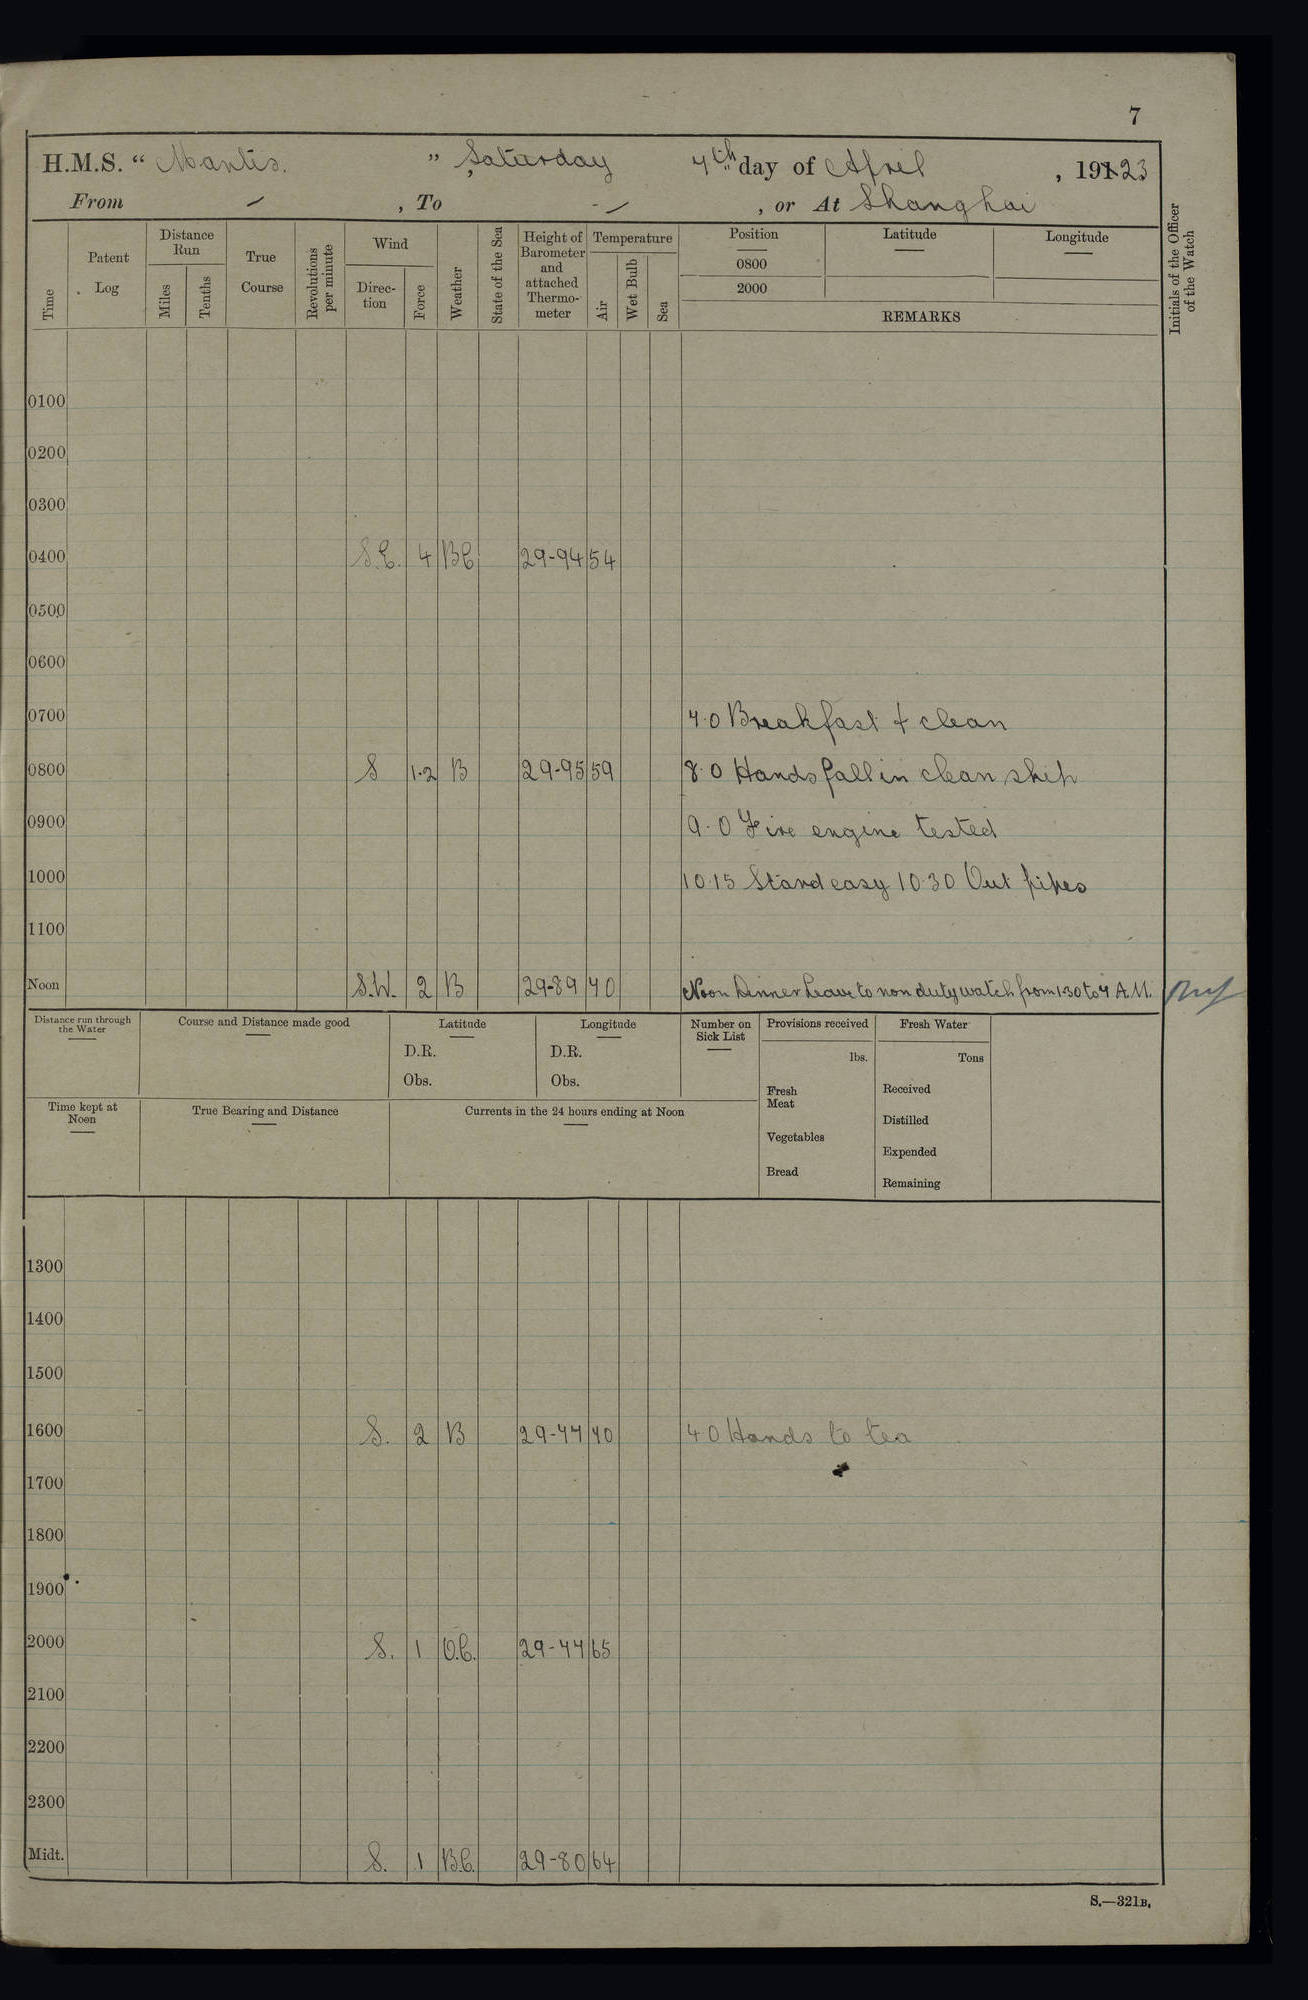 7
H.M.S. “ Mantis. ” Saturday 7th day of April , 1923
From — , To — , or At Shanghai
Time
Patent Log
Distance Run
Miles
Tenths
True Course
Revolutions per minute
Wind
Direc-tion
Force
Weather
State of the Sea
Height of Barometer and attached Thermo-meter
Temperature
Air
Wet Bulb
Sea
Position
0800
2000
Latitude
Longitude
REMARKS
Initials of the Officer of the Watch
0100
0200
0300
0400 S.E. 4 BC 29-94 54
0500
0600
0700 7.0 Breakfast & clean
0800 S 1-2 B 29-95 59 8.0 Hands fall in clean ship
0900 9.0 Fire engine tested
1000 10.15 Stand easy 10.30 Out pipes
1100
Noon S.W. 2 B 29-89 70 Noon Dinner Leave to non duty watch from 1.30 to 7 A.M.
Distance run through the Water
Course and Distance made good
Latitude
D.R.
Obs.
Longitude
D.R.
Obs.
Number on Sick List
Provisions received
lbs.
Fresh Meat
Vegetables
Bread
Fresh Water
Tons
Received
Distilled
Expended
Remaining
Time kept at Noon
True Bearing and Distance
Currents in the 24 hours ending at Noon
1300
1400
1500
1600 S. 2 B 29-77 70 4 0 Hands to tea
1700
1800
1900
2000 S. 1 O.C. 29-77 65
2100
2200
2300
Midt. S. 1 B.C. 29-80 64
S.—321B.